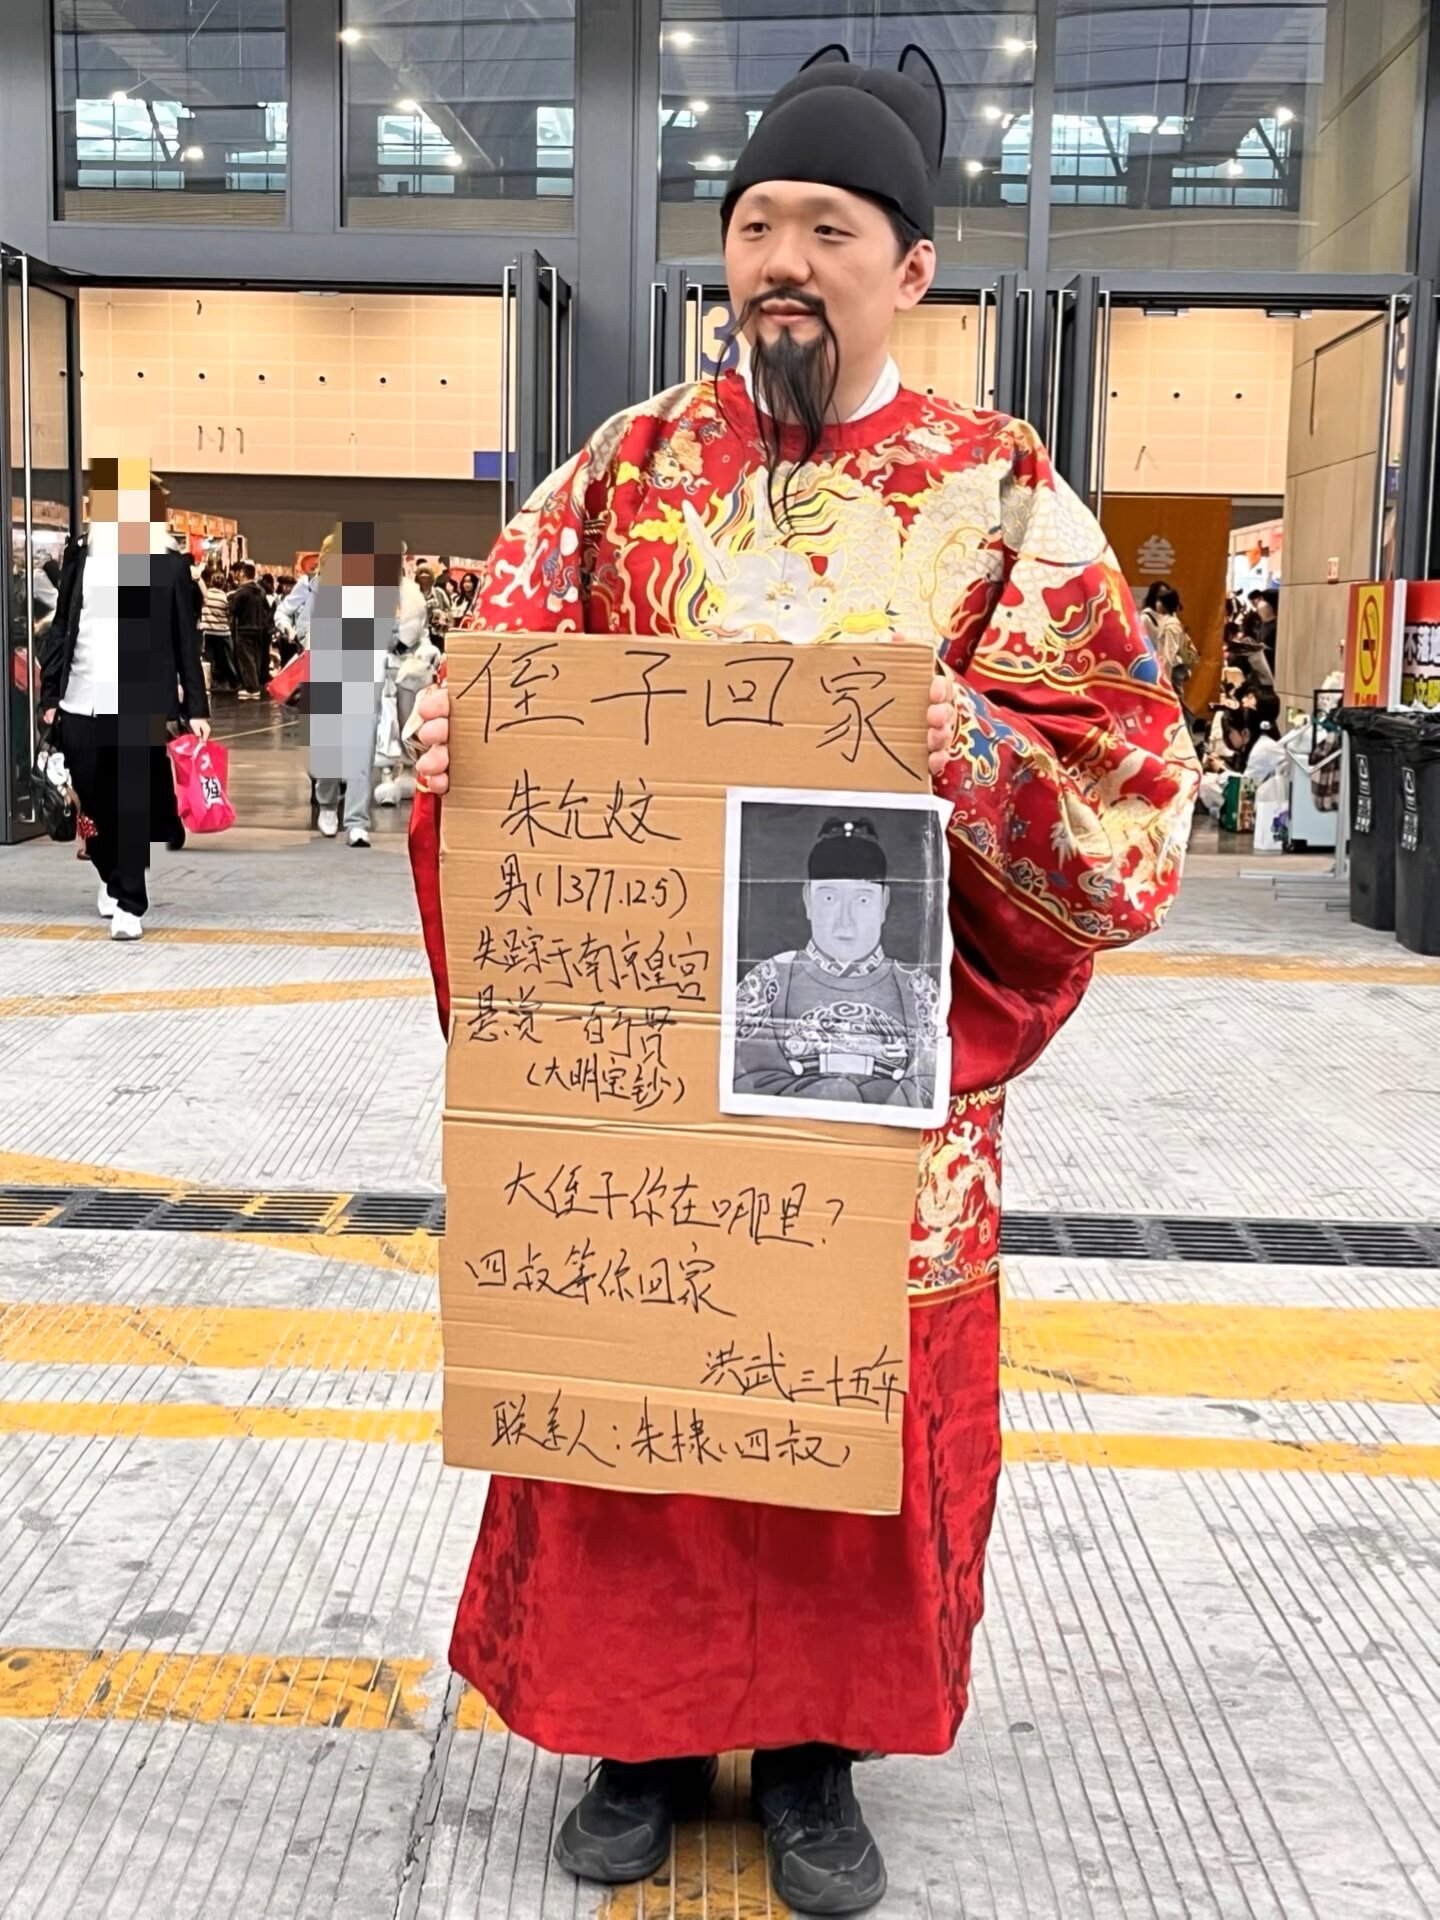 侄子回家
朱允炆
男(1377.12.5)
失踪于南京皇宫
悬赏一百千贯
(大明宝钞)
大侄子你在哪里?
四叔等你回家
洪武三十五年
联系人:朱棣(四叔)
3
叁